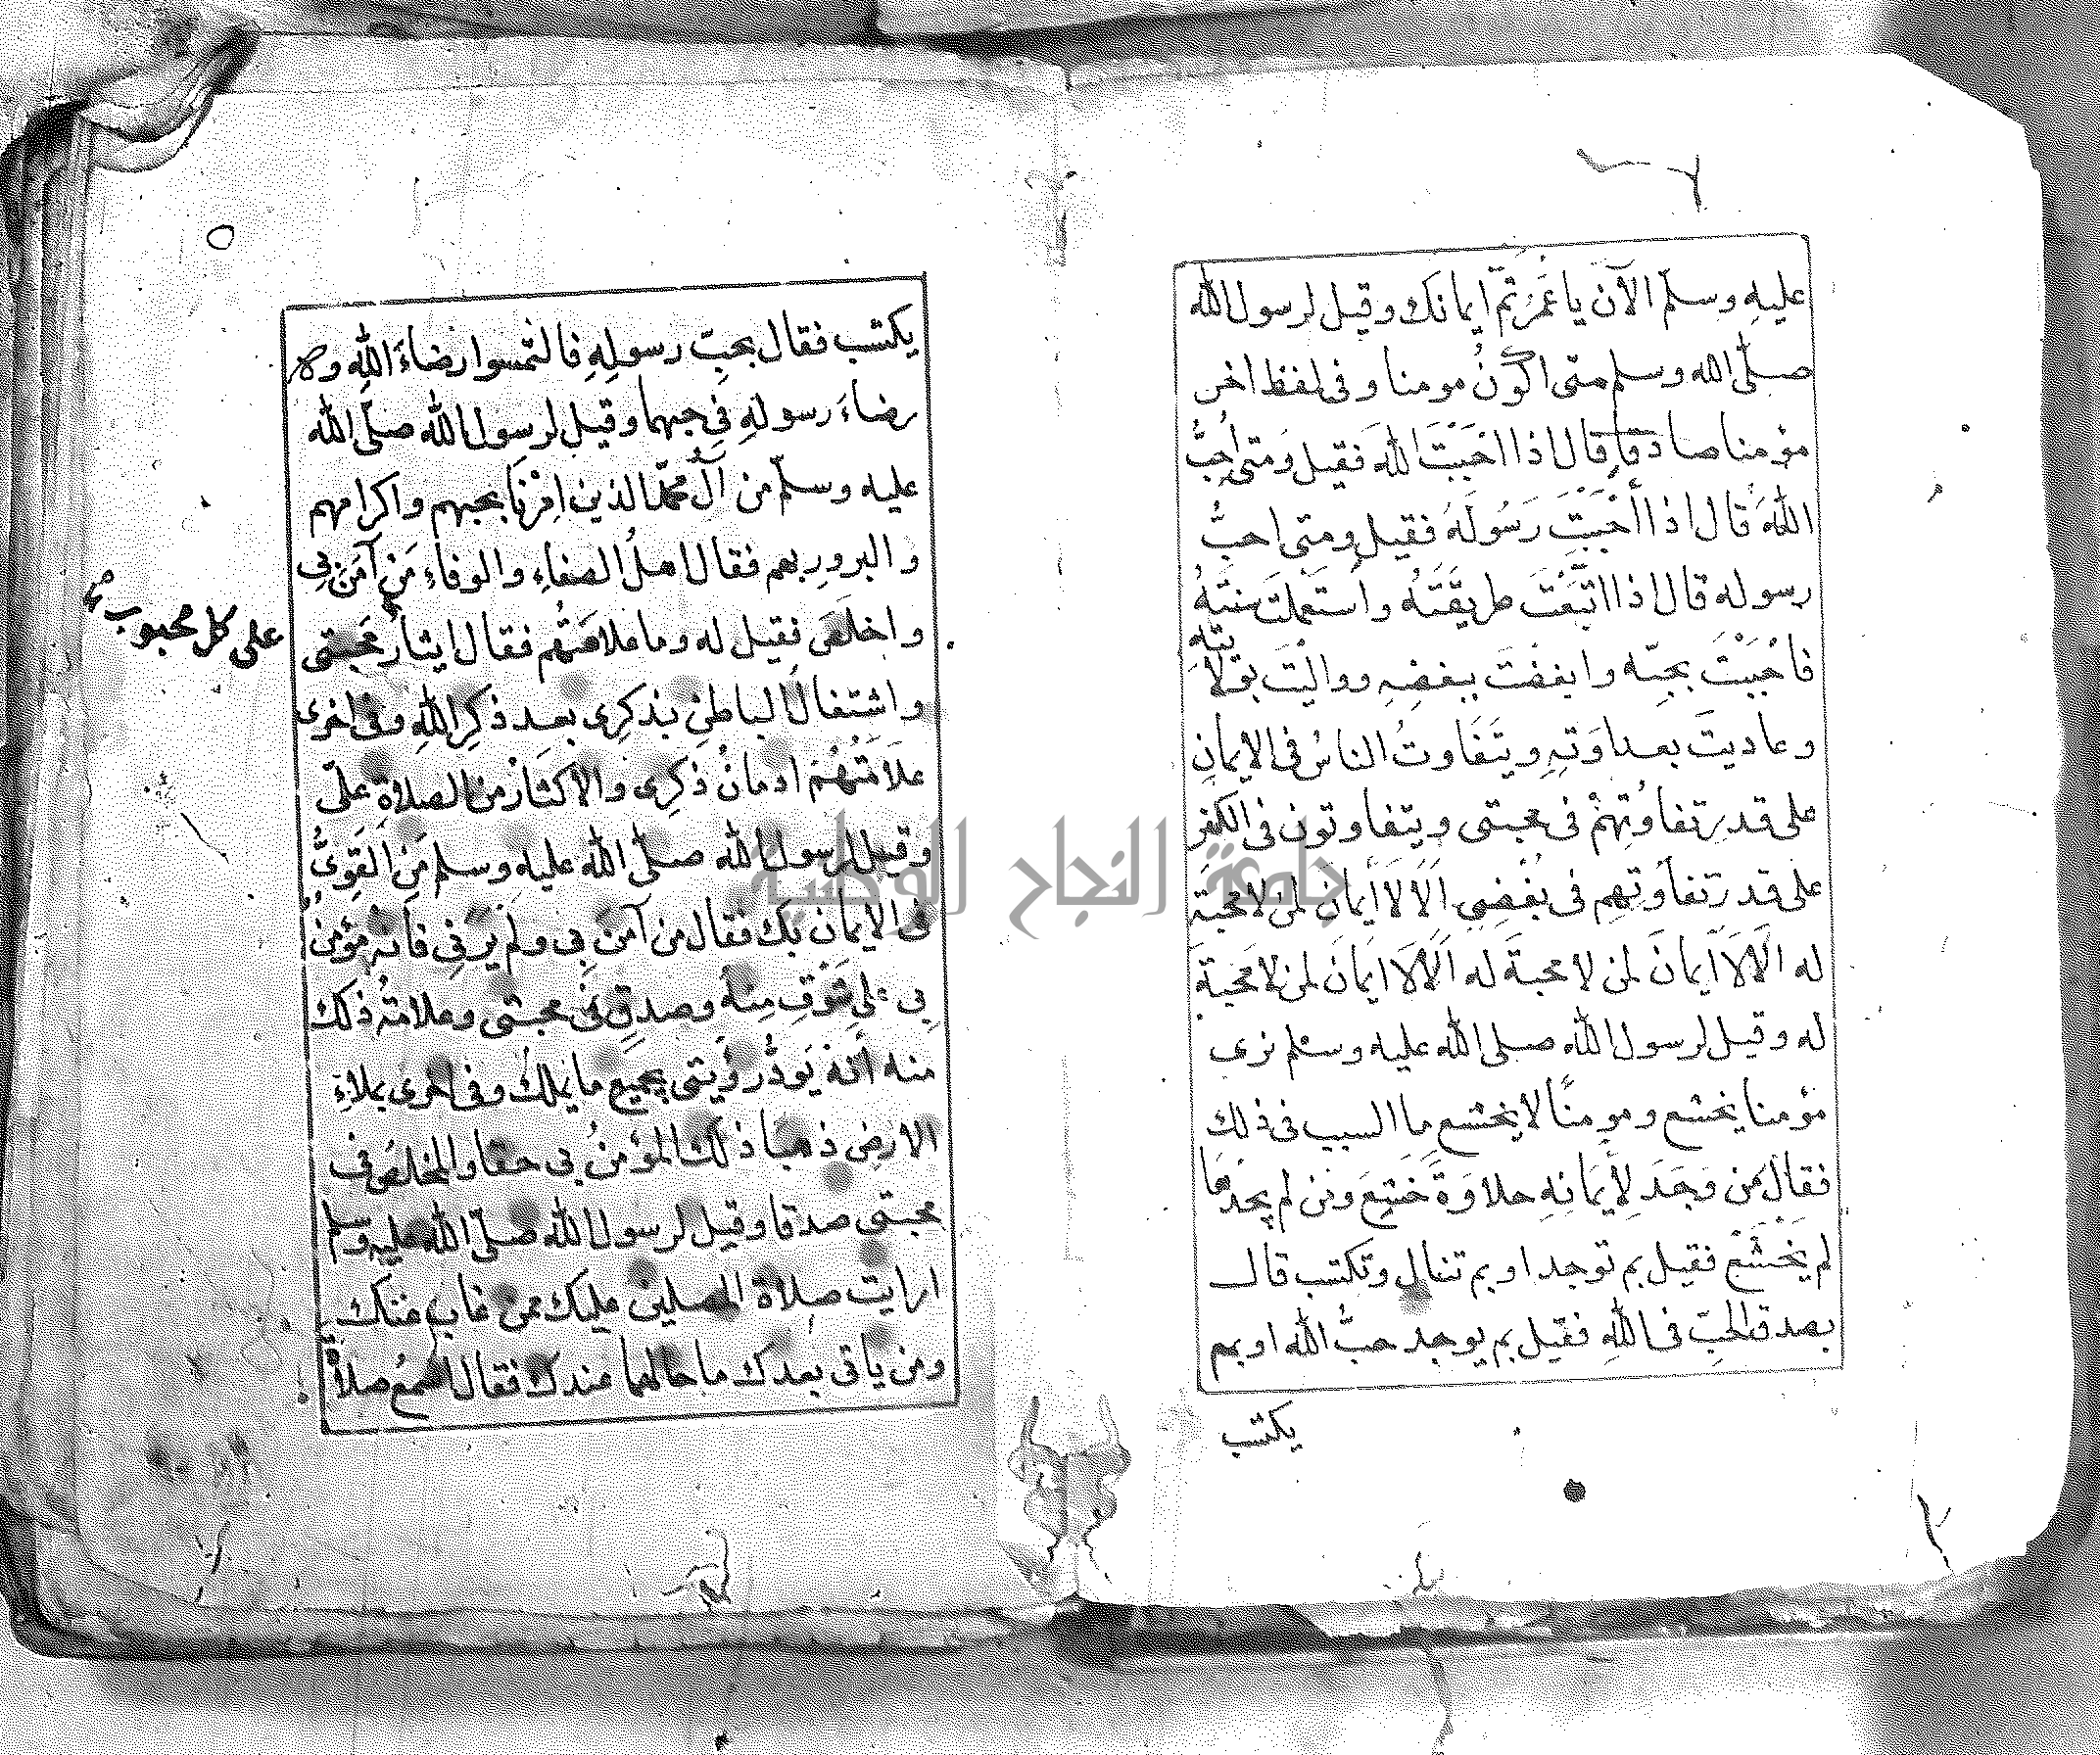 عليهِ وسلّم الآن يا عُمَرُ تمّ ايمانك وقيل لرسول الله
صلّى الله وسلم متى اكونُ مومنا وفى لفظ اخر
مؤمنا صادقا قال اذا احْبَبْتَ اللهَ فقيل وَمتى اُحِبُّ
اللهَ قال اذا أحْبَبْتَ رَسُولَهُ فقيل ومتى احبُّ
رسوله قال اذا اتَّبَعْتَ طريقَتَهُ واستعملتَ سنتهُ
فاحْبَبْتَ بحبّه وابغضْتَ ببغضِهِ وواليْتَ بوَلَايته
وعاديتَ بعداوَتِهِ ويتَفَاوتُ الناسُ فى الايمانِ
على قدرِ تفاوُتِهمْ فى محبتى ويتفاوتون فى الكفر
على قدر تفاوُتِهِم فى بُغْضِى اَلَا لَا أيمانَ لمن لا محبّة
له اَلَا لَا أيمانَ لمن لا محبةَ له اَلَا لَا ايمَانَ لمن لا محبةَ
له وقيل لرسول الله صلى الله عليه وسلم نرى
مؤمنا يخشع ومومنًا لا يخشع ما السبب فى ذلك
فقال مَن وَجَدَ لِأيمَانِهِ حلاوَةً خَشَعَ ومن لم يجدها
لم يَخْشَعْ فقيل بم توجد او بم تنال وتكتسب قال
بصدق الحبّ فى اللهِ فقيل بم يوجد حبُّ الله او بم
يكتسب
يكتسب فقال بحبِّ رسولِهِ فالتمسوا رضاءَ اللهِ و
رضاءَ رسولهِ فى حبهما وقيل لرسول الله صلّى الله
عليه وسلّم من آلُ محمّد الذين اُمِرْنَا بحبهم واكرامهم
والبرورِ بهم فقال اهلُ الصفاءِ والوفاءِ مَن آمَنَ بِى
واخلَصَ فقيل له وما علامَتُهُم فقال ايثارُ مَحَبتى
على كل محبوب
واشتغالُ الباطنِ بذكرِى بعد ذكرِ اللهِ وفى اخرى
علامَتُهُمْ ادمانُ ذكرِى والاكثارُ من الصلاةِ علىّ
وقيل لرسول الله صلّى الله عليه وسلم مَنِ القَوِىُّ
فى الايمانِ بك فقال من آمنَ بى ولَم يَرَنِى فانّه مؤمنٌ
بِى على شوْقٍ مِنهُ وصدقٍ فى محبتى وعلامتُه ذلك
منه أنّهُ يَوَدُّ رؤيتى بجميع ما يملك وفى اخرى بملاءِ
الارضِ ذهبًا ذلك المؤمنُ بى حقا والمخلصُ فى
محبتى صدقا وقيل لرسول الله صلّى الله عليه وسلم
ارايت صلاة المصلين عليك ممن غاب عنك
ومن ياتى بعدك ما حالهما عندك فقال اسمعُ صلاةَ